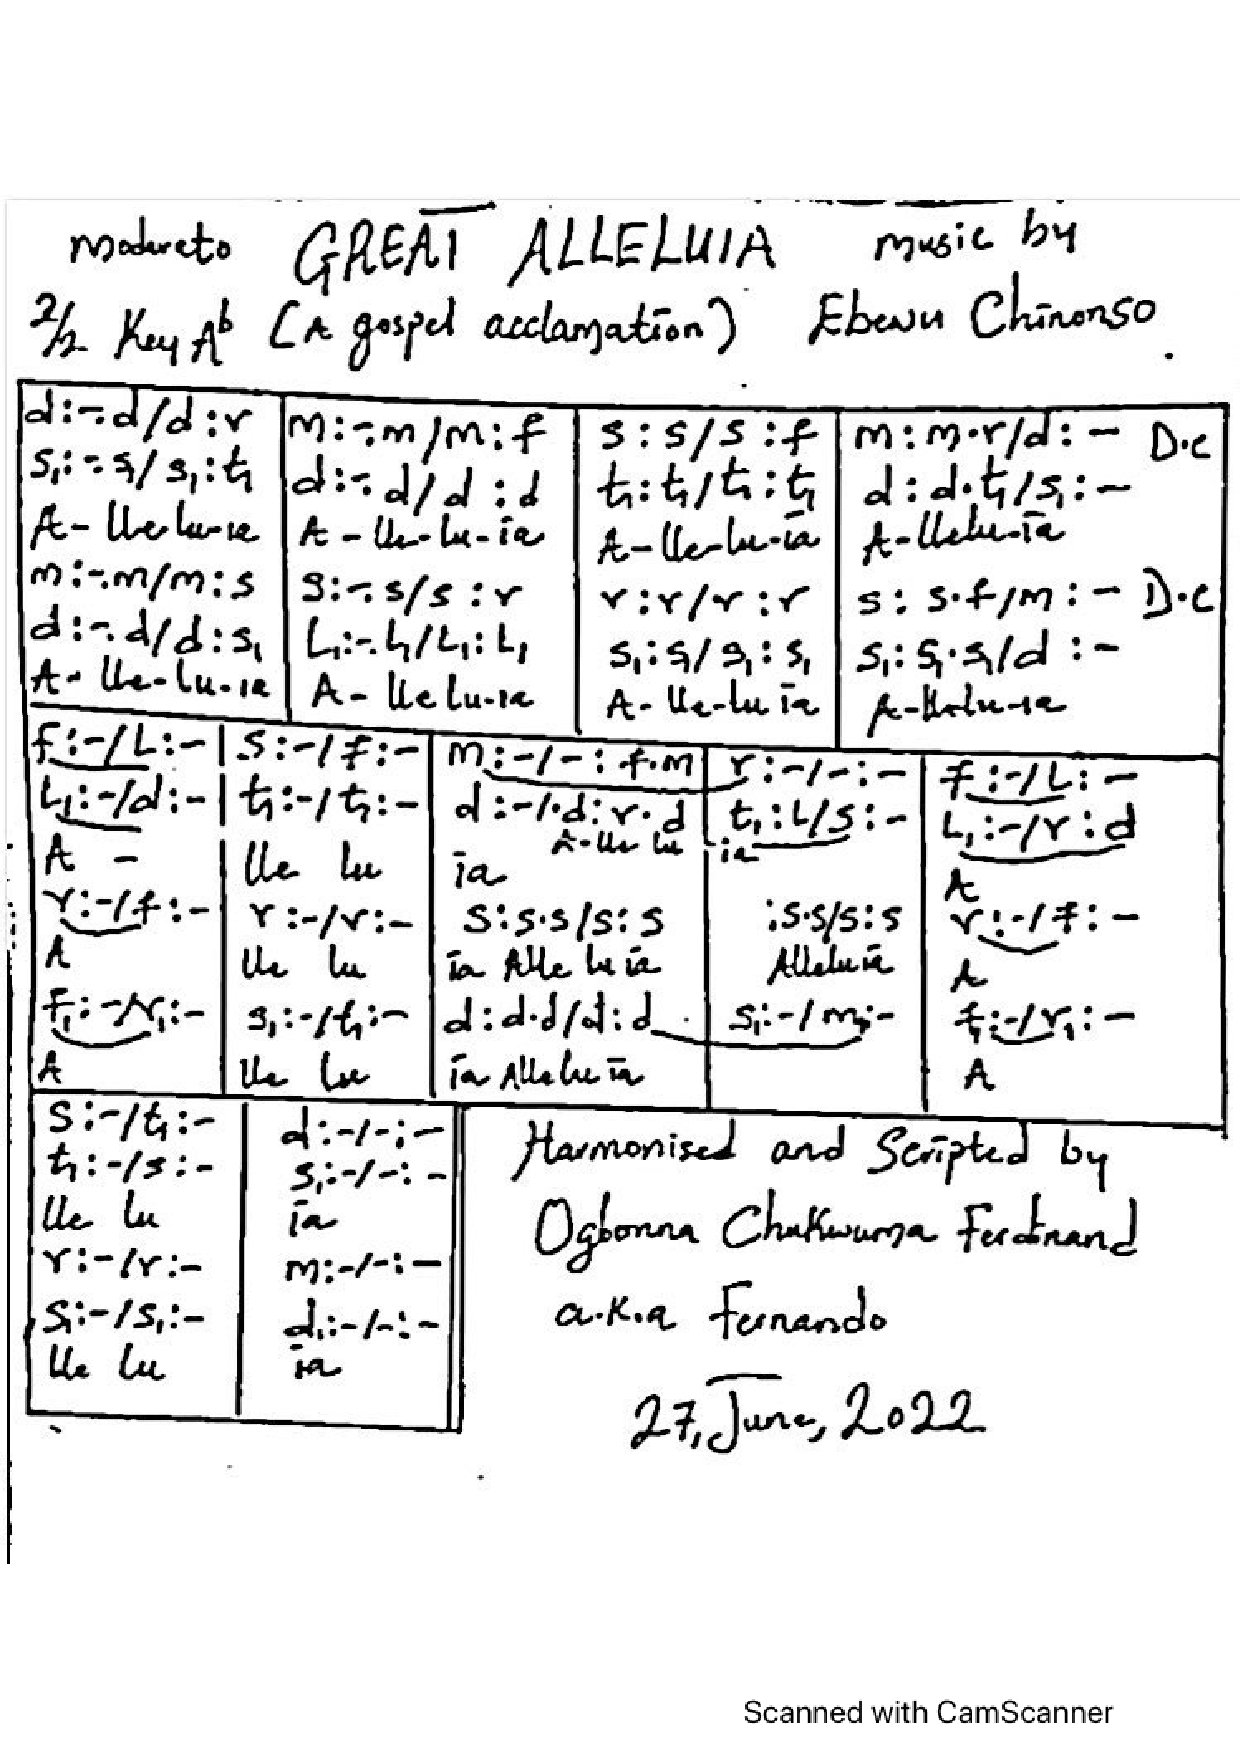 Modereto GREAT ALLELUIA music by
2/2 Key Ab (A gospel acclamation) Ebewu Chinonso
d:-.d/d:r | m:-.m/m:f | s:s/s:f | m:m.r/d:- D.C
s₁:-.s₁/s₁:t₁ | d:-.d/d:d | t₁:t₁/t₁:t₁ | d:d.t₁/s₁:-
A-lle lu-ia | A-lle-lu-ia | A-lle-lu-ia | A-llelu-ia
m:-.m/m:s | s:-.s/s:r | r:r/r:r | s:s.f/m:- D.C
d:-.d/d:s₁ | L₁:-.L₁/L₁:L₁ | s₁:s₁/s₁:s₁ | s₁:s₁.s₁/d:-
A-lle-lu-ia | A-lle lu-ia | A-lle-lu ia | A-llelu-ia
f:-/L:- | s:-/f:- | m:-/-:f.m | r:-/-:- | f:-/L:-
L₁:-/d:- | t₁:-/t₁:- | d:-/.d:r.d | t₁:L/s:- | L₁:-/r:d
A-lle lu ia
A - | lle lu | ia | A
r:-/f:- | r:-/r:- | s:s.s/s:s | :s.s/s:s | r:-/f:-
A | lle lu | ia Alle lu ia | Alleluia | A
f₁:-/r₁:- | s₁:-/t₁:- | d:d.d/d:d | s₁:-/m₁:- | f₁:-/r₁:-
A | lle lu | ia Alleluia | A
s:-/t₁:- | d:-/-:-
t₁:-/s:- | s₁:-/-:-
lle lu | ia
r:-/r:- | m:-/-:-
s₁:-/s₁:- | d₁:-/-:-
lle lu | ia
Harmonised and Scripted by
Ogbonna Chukwuma Ferdinand
a.k.a Fernando
27, June, 2022
Scanned with CamScanner